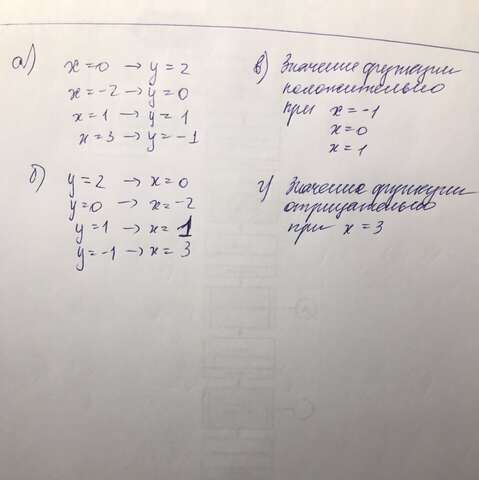 а)
x=0 → y=2
x=-2 → y=0
x=1 → y=1
x=3 → y=-1
б)
y=2 → x=0
y=0 → x=-2
y=1 → x=1
y=-1 → x=3
в) Значение функции
положительно
при x=-1
x=0
x=1
г) Значение функции
отрицательно
при x=3